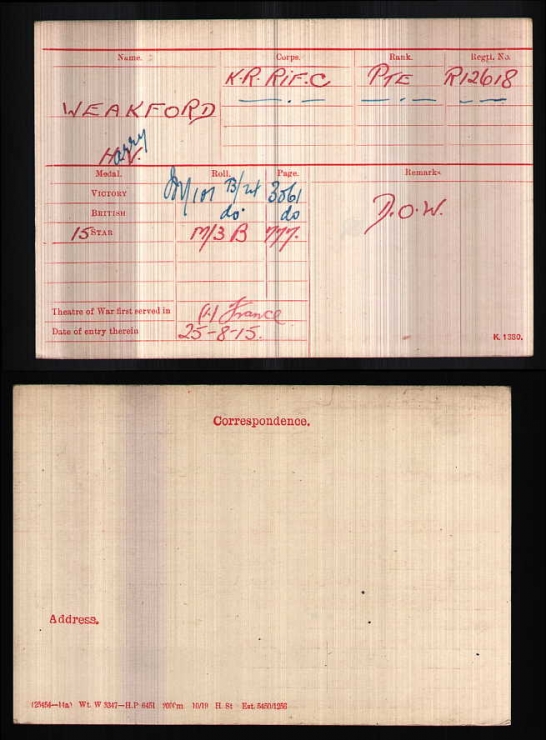 Name. Corps. Rank. Regtl. No.
K.R. RIF.C PTE R12618
WEAKFORD
Harry
Medal. Roll. Page. Remarks
VICTORY 101 B/21 3061 D.O.W.
BRITISH do. do
15 STAR M/3 B 777.
Theatre of War first served in (1) France
Date of entry therein 25-8-15.
K. 1380.
Correspondence.
Address.
Wt. W 3347—H.P. 6451 10/19 H. St